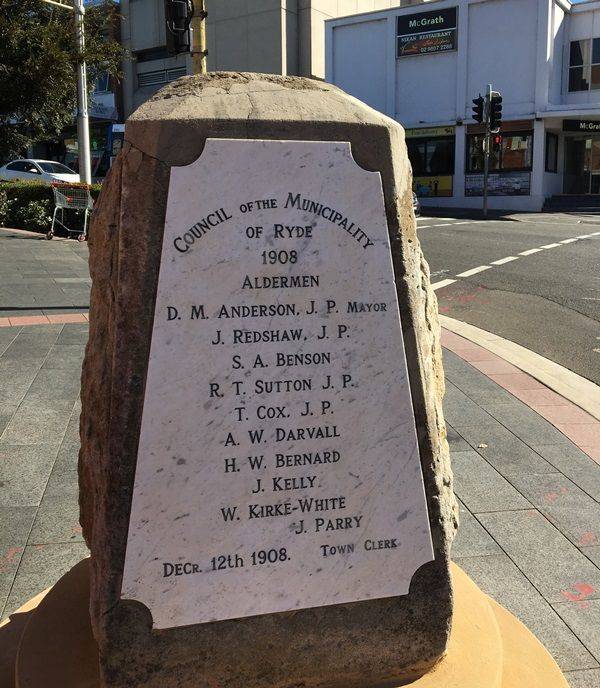 McGrath
NIKAN RESTAURANT
02 9807 2286
McGrath
COUNCIL OF THE MUNICIPALITY
OF RYDE
1908
ALDERMEN
D. M. ANDERSON, J. P. MAYOR
J. REDSHAW, J. P.
S. A. BENSON
R. T. SUTTON J. P.
T. COX, J. P.
A. W. DARVALL
H. W. BERNARD
J. KELLY.
W. KIRKE-WHITE
J. PARRY
DECR. 12th 1908. TOWN CLERK